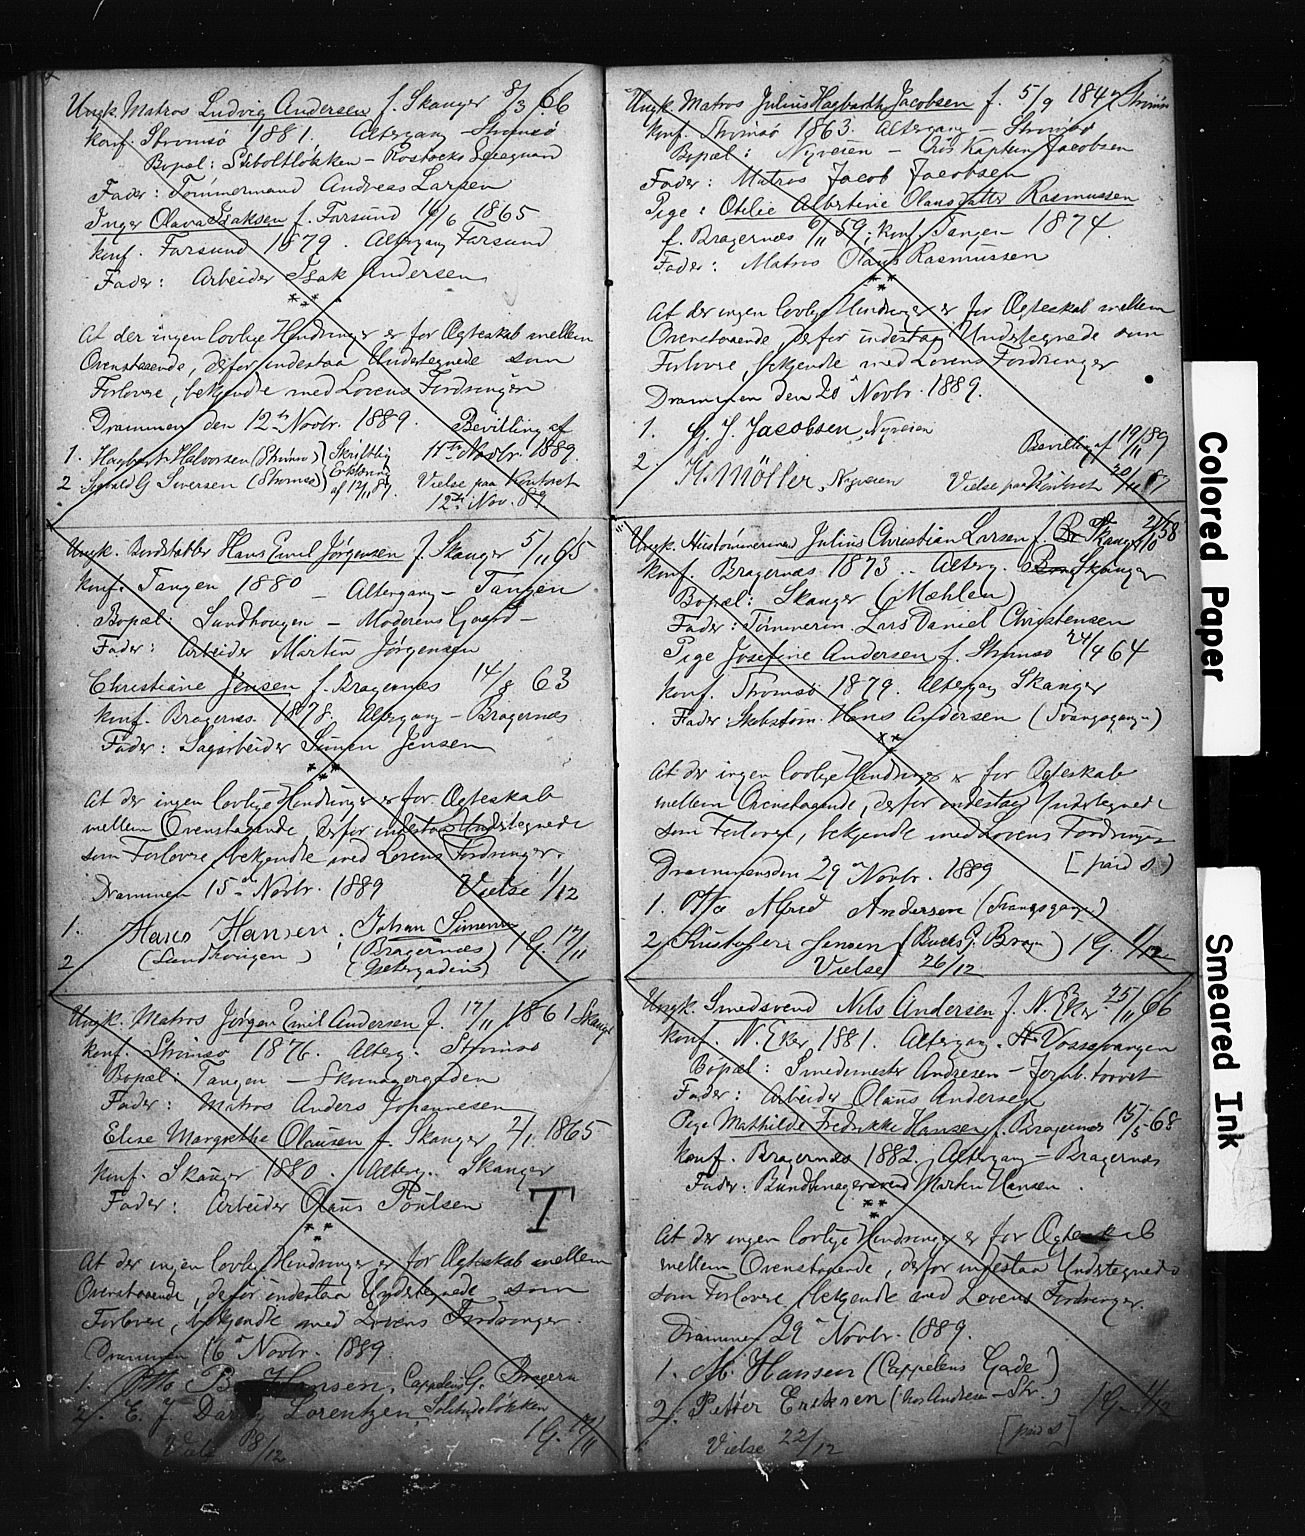 Ungk. Matros Ludvig Andersen f. Skanger 8/3 66
konf. Strømsø 1881. Altergang Strømsø
Bopæl: Stiboltløkken –
Fader: Tømmermand Andreas Larsen
Inger Olava Isaksen f. Farsund 14/6 1865
konf. Farsund 1879. Altergang Farsund
Fader: Arbeider Isak Andersen
At der ingen lovlige Hindringer er for Ægteskab mellem
Ovenstaaende, derfor indestaa Undertegnede som
Forlovere, bekjendte med Lovens Fordringer
Drammen den 12te Novbr. 1889. Bevilling af
11te Novbr. 1889.
1. Hagbart Halvorsen (Strømsø) Skriftlig
2 Sigvald G Siversen (Strømsø) Erklæring af 12/11 89. Vielse paa Kontoret
12te Nov. 89
Ungk. Bordstabber Hans Emil Jørgensen f. Skanger 5/11 65
konf. Tangen 1880 – Altergang – Tangen
Bopæl: Sundhougen – Moderens Gaard –
Fader: Arbeider Martin Jørgensen
Christiane Jensen f. Bragernæs 14/8 63
konf. Bragernæs 1878. Altergang – Bragernæs
Fader: Sagarbeider Simen Jensen
At der ingen lovlige Hindringer er for Ægteskab
mellem Ovenstaaende, derfor indestaa Undertegnede
som Forlovere, bekjendte med Lovens Fordringer.
Drammen 15de Novbr. 1889 Vielse 1/12
1. Hans Hansen. Johan Simensen
2 (Sundhougen) (Bragernæs) 1 G. 17/11
Ungk. Matros Jørgen Emil Andersen f. 17/11 1861 Skanger
konf. Strømsø 1876. Alterg. Strømsø
Bopæl: Tangen – Skomagergaden
Fader: Matros Anders Johannesen
Elise Margrethe Olausen f. Skanger 2/1 1865
konf. Skanger 1880. Alterg. Skanger
Fader: Arbeider Olaus Poulsen
T
At der ingen lovlig Hindringer er for Ægteskab mellem
Ovenstaaende, derfor indestaa Undertegnede som
Forlovere, bekjendte med Lovens Fordringer.
Drammen 16de Novbr. 1889.
1. Hansen, Cappelens G. Bragern
2. E. J. Lorentzen,
1 G. 17/11
Vielse 8/12
Ungk. Matros Julius Hagbarth Jacobsen f. 5/9 1847 Strømsø
konf. Strømsø 1863. Altergang – Strømsø
Bopæl: Nyveien – Hos Kaptein Jacobsen
Fader: Matros Jacob Jacobsen
Pige: Otilie Albertine Olausdatter Rasmussen
f. Bragernæs 6/11 59; konf. Tangen 1874
Fader: Matros Olaus Rasmussen
At der ingen lovlige Hindringer er for Ægteskab mellem
Ovenstaaende, derfor indestaa Undertegnede som
Forlovere, bekjendte med Lovens Fordringer
Drammen den 20de Novbr. 1889.
1. G. J. Jacobsen, Nyveien
Bevilling af 19/11 89
2. K. Møller, Nyveien Vielse paa Kontoret 20/11 89
Ungk. Hustømmermand Julius Christian Larsen f. Skanger 21/10 58
konf. Bragernæs 1873. Alterg. Skanger
Bopæl: Skanger (Mæhlen)
Fader: Tømmerm. Lars Daniel Christensen
Pige Josefine Andersen f. Strømsø 24/4 64
konf. Strømsø 1879. Altergang Skanger
Fader: Skibstøm. Hans Andersen (Svangsgangen)
At der ingen lovlige Hindringer er for Ægteskab
mellem Ovenstaaende, derfor indestaa Undertegnede
som Forlovere, bekjendte med Lovens Fordringer
Drammen den 29de Novbr. 1889
1. Alfred Andersen (Svangsgangen)
2. Kristoffer Jensen 1 G. 1/12
Vielse 26/12
Ungk. Smedsvend Nils Andersen f. N. Eker 25/11 66
konf. N. Eker 1881. Altergang. Vossevangen
Bopæl: Smedemester Andresen – Jernb. torvet
Fader: Arbeider Olaus Andersen
Pige Mathilde Fredrikke Hansen f. Bragernæs 15/5 68
konf. Bragernæs 1882. Altergang – Bragernæs
Fader: Bundtmagersvend Martin Hansen.
At der ingen lovlige Hindringer er for Ægteskab
mellem Ovenstaaende, derfor indestaa Undertegnede
som Forlovere bekjendte med Lovens Fordringer.
Drammen 29de Novbr. 1889.
1. M. Hansen (Cappelens Gade)
2. Petter Eriksen (hos Andresen – Str.) 1 G. 1/12
Vielse 22/12
Colored Paper
Smeared Ink